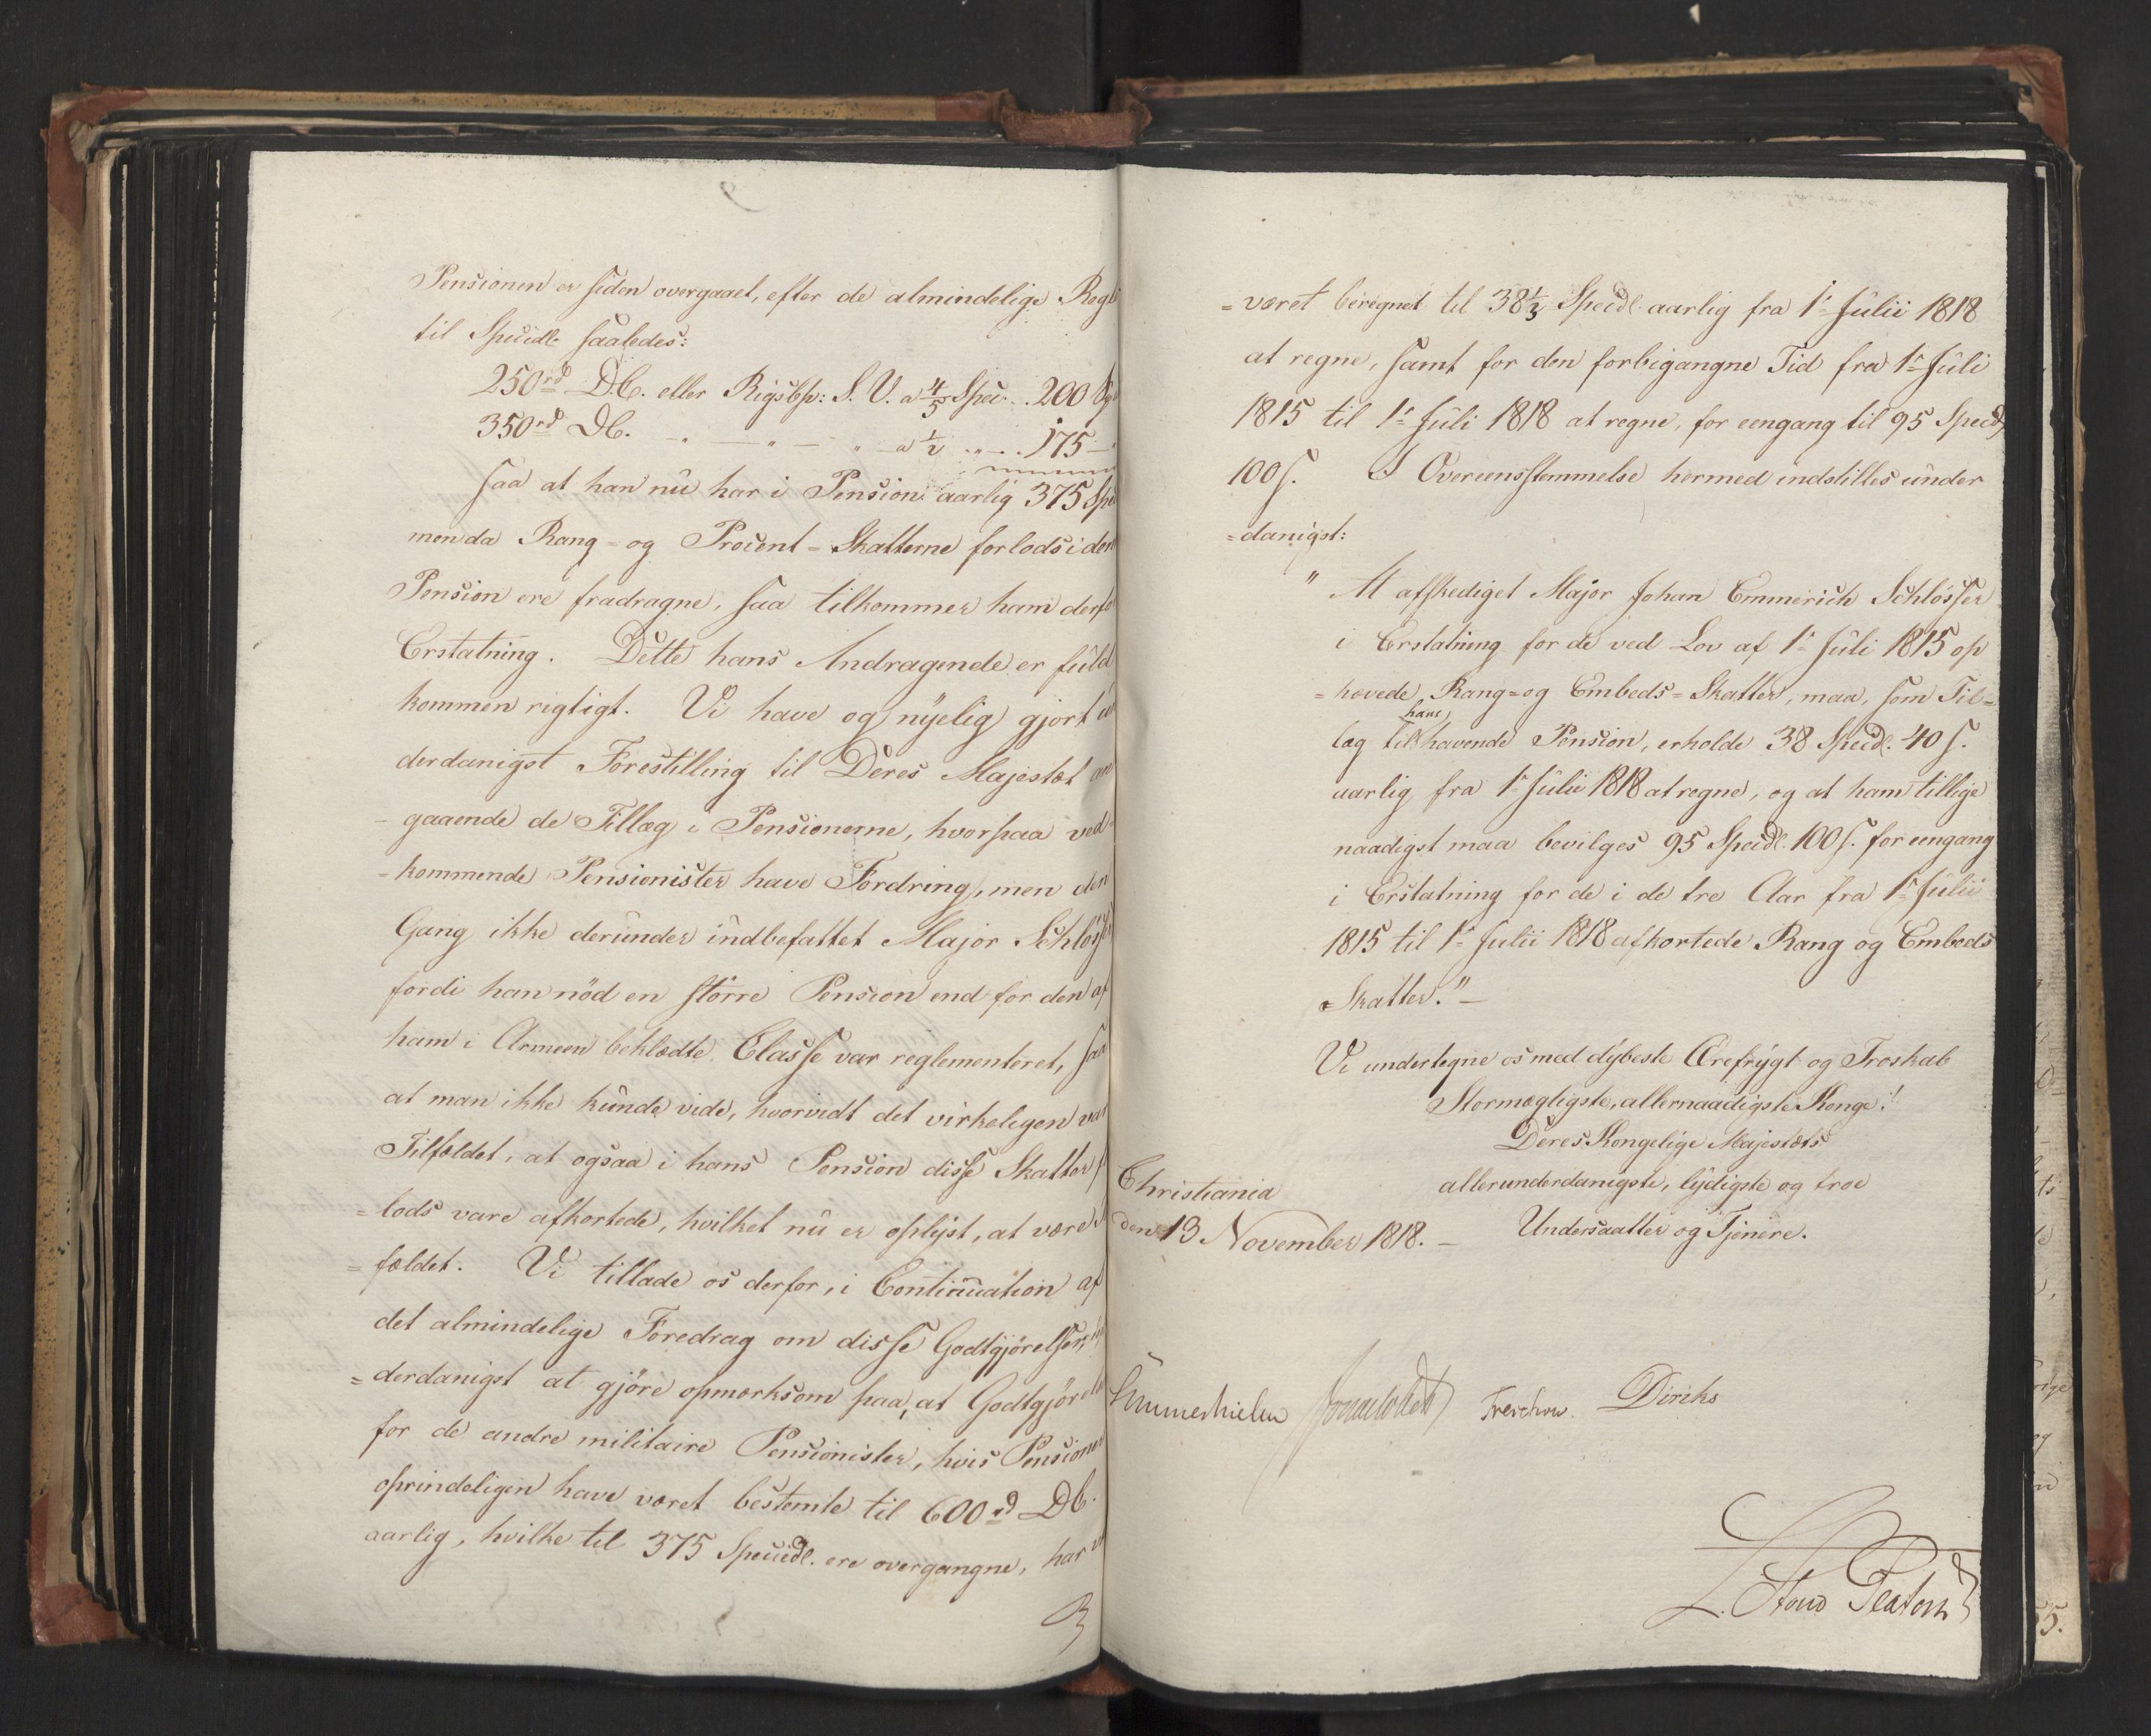 Pensionen er siden overgaaet, efter de almindelige Regl
til Speciedlr. saaledes:
250rd D.C. eller Rigsbp: S. V. a 4/5 Speci . . 200 Sp
350rd DC. - " - " - " - a 1/2 . . " . . 175 - "
saa at han nu har i Pension aarlig 375 Spe
men da Rang- og Procent-Skatterne forlods i den
Pension ere fradragne, saa tilkommer ham derfo
Erstatning. Dette hans Andragende er fuld
kommen rigtigt. Vi have og nyelig gjort un
derdanigst Forestilling til Deres Majestæt an
-gaaende de Tillæg i Pensionerne, hvorpaa ved-
-kommende Pensionister have Fordring, men den
Gang ikke derunder indbefattet Major Schløsser
fordi han nød en større Pension end for den af
ham i Armeen beklædte Classe var reglementeret, saa
at man ikke kunde vide, hvorvidt det virkeligen var
Tilfældet, at ogsaa i hans Pension disse Skatter f
=lods vare afkortede, hvilket nu er oplyst, at være
=fældet. Vi tillade os derfor, i Continuation af
det almindelige Foredrag om disse Godtgjørelser,
=derdanigst at gjøre opmærksom paa, at Godtgjørelse
for de andre militaire Pensionister, hvis Pensioner
oprindeligen have været bestemte til 600 rd DC.
aarlig, hvilke til 375 Speciedl. ere overgangne, har
=været beregnet til 38 1/3 Specidl. aarlig fra 1ste Julii 1818
at regne, samt for den forbigangne Tid fra 1ste Juli
1815 til 1ste Juli 1818 at regne, for eengang til 95 Specidl
100 s. I Overeensstemmelse hermed indstilles under
=danigst:
" At afskediget Major Johan Emmerich Schløsser
i Erstatning for de ved Lov af 1ste Juli 1815 op
=hævede Rang- og Embeds-Skatter, maa, som Til=
læg til hans havende Pension, erholde 38 Specidl. 40 s.
aarlig fra 1ste Julii 1818 at regne, og at ham tillige
naadigst maa bevilges 95 Specidl. 100 s. for eengang
i Erstatning for de i de tre Aar fra 1ste Julii
1815 til 1ste Julii 1818 afkortede Rang og Embeds
=Skatter." -
Vi undertegne os med dybeste Ærefrygt og Troskab
Stormægtigste, allernaadigste Konge!
Deres Kongelige Majestæts
allerunderdanigste, lydigste og troe
Undersaatter og Tjenere.
Christiania
den 13 November 1818. -
Sommerhielm Treschow. Diriks
L. Stoud Platou